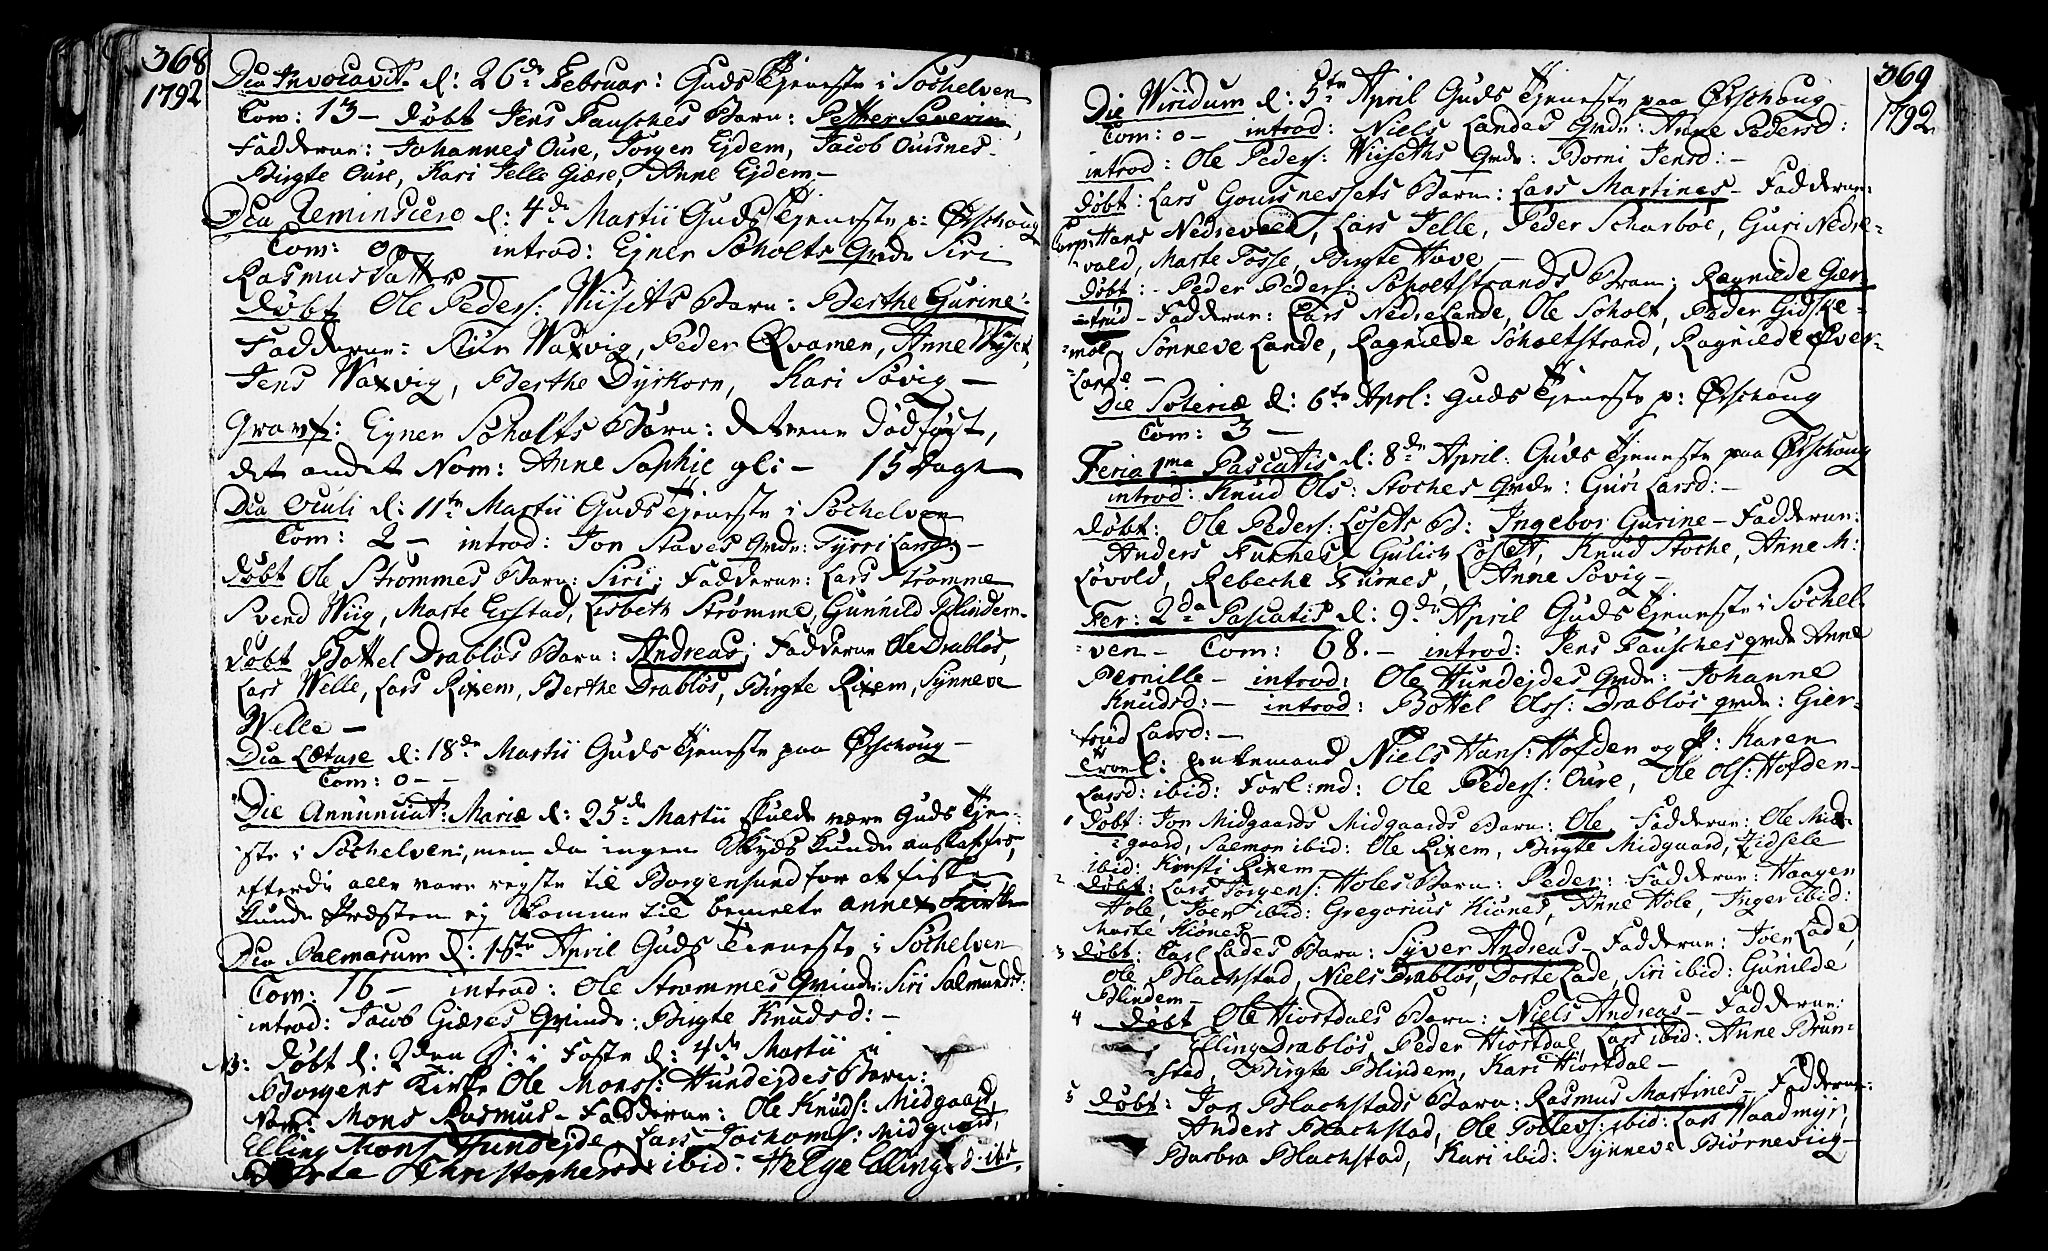 368
1792
Dca Invocavit. d: 26de Februar: Guds Tjeneste i Söchelven
Com: 13 – døbt Jens Fausches Barn: Petter Severin,
Fadderne: Johannes Oure, Jørgen Ejdem, Jacob Oursnes-
Birgte Oure, Kari Jelle Giære, Anne Ejdem –
Dca Reminscero d: 4de Martii Guds Tjeneste p: Ørschoug
Com: 0 introd: Ejner Søholts Qvde Siri
Rasmusdatter –
døbt Ole Peders: Wiisets Barn: Berthe Gurine:
Fadderne: Siur Waxvig, Peder Qvamen, Anne Wiiset,
Jens Waxvig, Berthe Dyrkorn, Kari Søvig –
Gravf: Eyner Søholts Børn: det eene dødfødt,
det andet Nom: Anne Sophie gl: – 15 dage
Dca Oculi d: 11te Martii Guds Tjeneste i Søchelven
Com: 2 – introd: Jon Staves Qvde: Tyrri Larsd: –
døbt Ole Strømmes Barn: Siri; Fadderne: Lars Strømme
Svend Wiig, Marte Erstad, Lisbeth Strømme, Gunnild Blindem-
døbt Bottel Drabløs Barn: Andreas; Fadderne Ole Drabløs,
Lars Welle, Lars Rixem, Berthe Drabløs, Birgte Rixem, Synneve
Welle –
Dca Lætare d: 18de Martii Guds Tjeneste paa Ørschoug –
Com: 0 – –
Die Annunciat: Mariæ d: 25de Martii skulde være Guds Tjene-
ste i Søchelven, men da ingen Skyds kunde anskaffes,
efterdi alle vare reyste til Borgensund for at fiske
kunde Præsten ej komme til bemelte annex Kirke
Dca Palmarum d: 1ste April Guds Tieneste i Søchelven
Com: 16 – introd: Ole Strømmes Qvinde: Siri Salmundsd:
introd: Jacob Giæres Qvinde: Birgte Knudsd: –
NB: døbt d: 2den S: i Faste d: 4de Martii i
Borgens Kirke Ole Monss: Hundejdes Barn:
Nom: Mons Rasmus – Fadderne: Ole Knuds: Midgaard,
Elling Mons: Hundejde, Lars Jochoms: Midgaard,
Christophersd ibid: Helge Ellingsd: ibd.
369
1792
Die Viridum d: 5te April Guds Tjeneste paa Ørschoug –
Com: 0 – introd: Niels Landes Qvde: Anne Pedersd:
introd: Ole Peders: Wiiseths Qvde: Borni Jensd: –
døbt: Lars Goursnessets Barn: Lars Martines – Fadderne:
Corp: Hans Nedrevold, Lars Jelle, Peder Scharboe, Guri Nedre-
vold, Marte Fosse, Birgte Hove –
døbt: – Peder Peders: Søholtstrands Bran: Ragnilde Gier-
trud – Fadderne: Lars Nedre Lande, Ole Søholt, Peder Gidske-
moe, Sønneve Lande, Ragnilde Søholtstrand, Ragnilde Øver-
Lande –
Die Soteriæ d: 6te Aprl: Guds Tjeneste p: Ørschoug
Com: 3 –
Feria 1ma Pascatis d: 8de April: Guds Tjeneste paa Ørschoug
introd: Knud Ols: Stoches Qvde: Guri Larsd: –
døbt: Ole Peders: Løsets B: Ingebor Gurine – Fadderne:
Anders Furnes, Gulich Løset, Knud Stoche, Anne M:
Løvold, Rebeche Furnes, Anne Søvig –
Fer: 2da Pascatis d: 9de April Guds Tjeneste i Søchel-
ven – Com: 68. – introd: Jens Fausches qvde Anne
Pernille – introd: Ole Hundejdes Qvde: Johanne
Knudsd: – introd: Bottel Olss: Drabløs qvde: Gier-
trud Larsd: –
Trol: Enkemand Niels Hans: Hofden og P: Karen
Larsd: ibid: Forl:md: Ole Peders: Oure, Ole Ols: Hofden –
1 døbt: Jon Midgaards Midgaards Barn: Ole Fadderne: Ole Mid-
gaard, Salmon ibid: Ole Rixem, Birgte Midgaard, Zidsele
ibid: Kirsti Rixem
2 døbt: Lars Jørgens: Holes Barn: Peder: Fadderne: Haagen
Hole, Joen ibid: Gregorius Kiønes, Anne Hole, Inger ibid:
Marte Kiønes –
3 døbt: Carl Lades Barn: Syver Andreas – Fadderne: Joen Lade,
Ole Blachstad, Niels Drabløs, Dorte Lade, Siri ibid: Gunilde
Blindem –
4 døbt Ole Hiortdals Barn: Niels Andreas – Fadderne:
Elling Drabløs, Peder Hiortdal, Lars ibid: Anne Brun-
stad, Birgte Blindem, Kari Hiortdal –
5 døbt: Jon Blachstads Barn: Rasmus Martines – Fadderne:
Anders Blachstad, Ole Tollevs: ibid: Lars Waadmyr,
Barbra Blachstad, Kari ibid: Synneve Biørneviig –